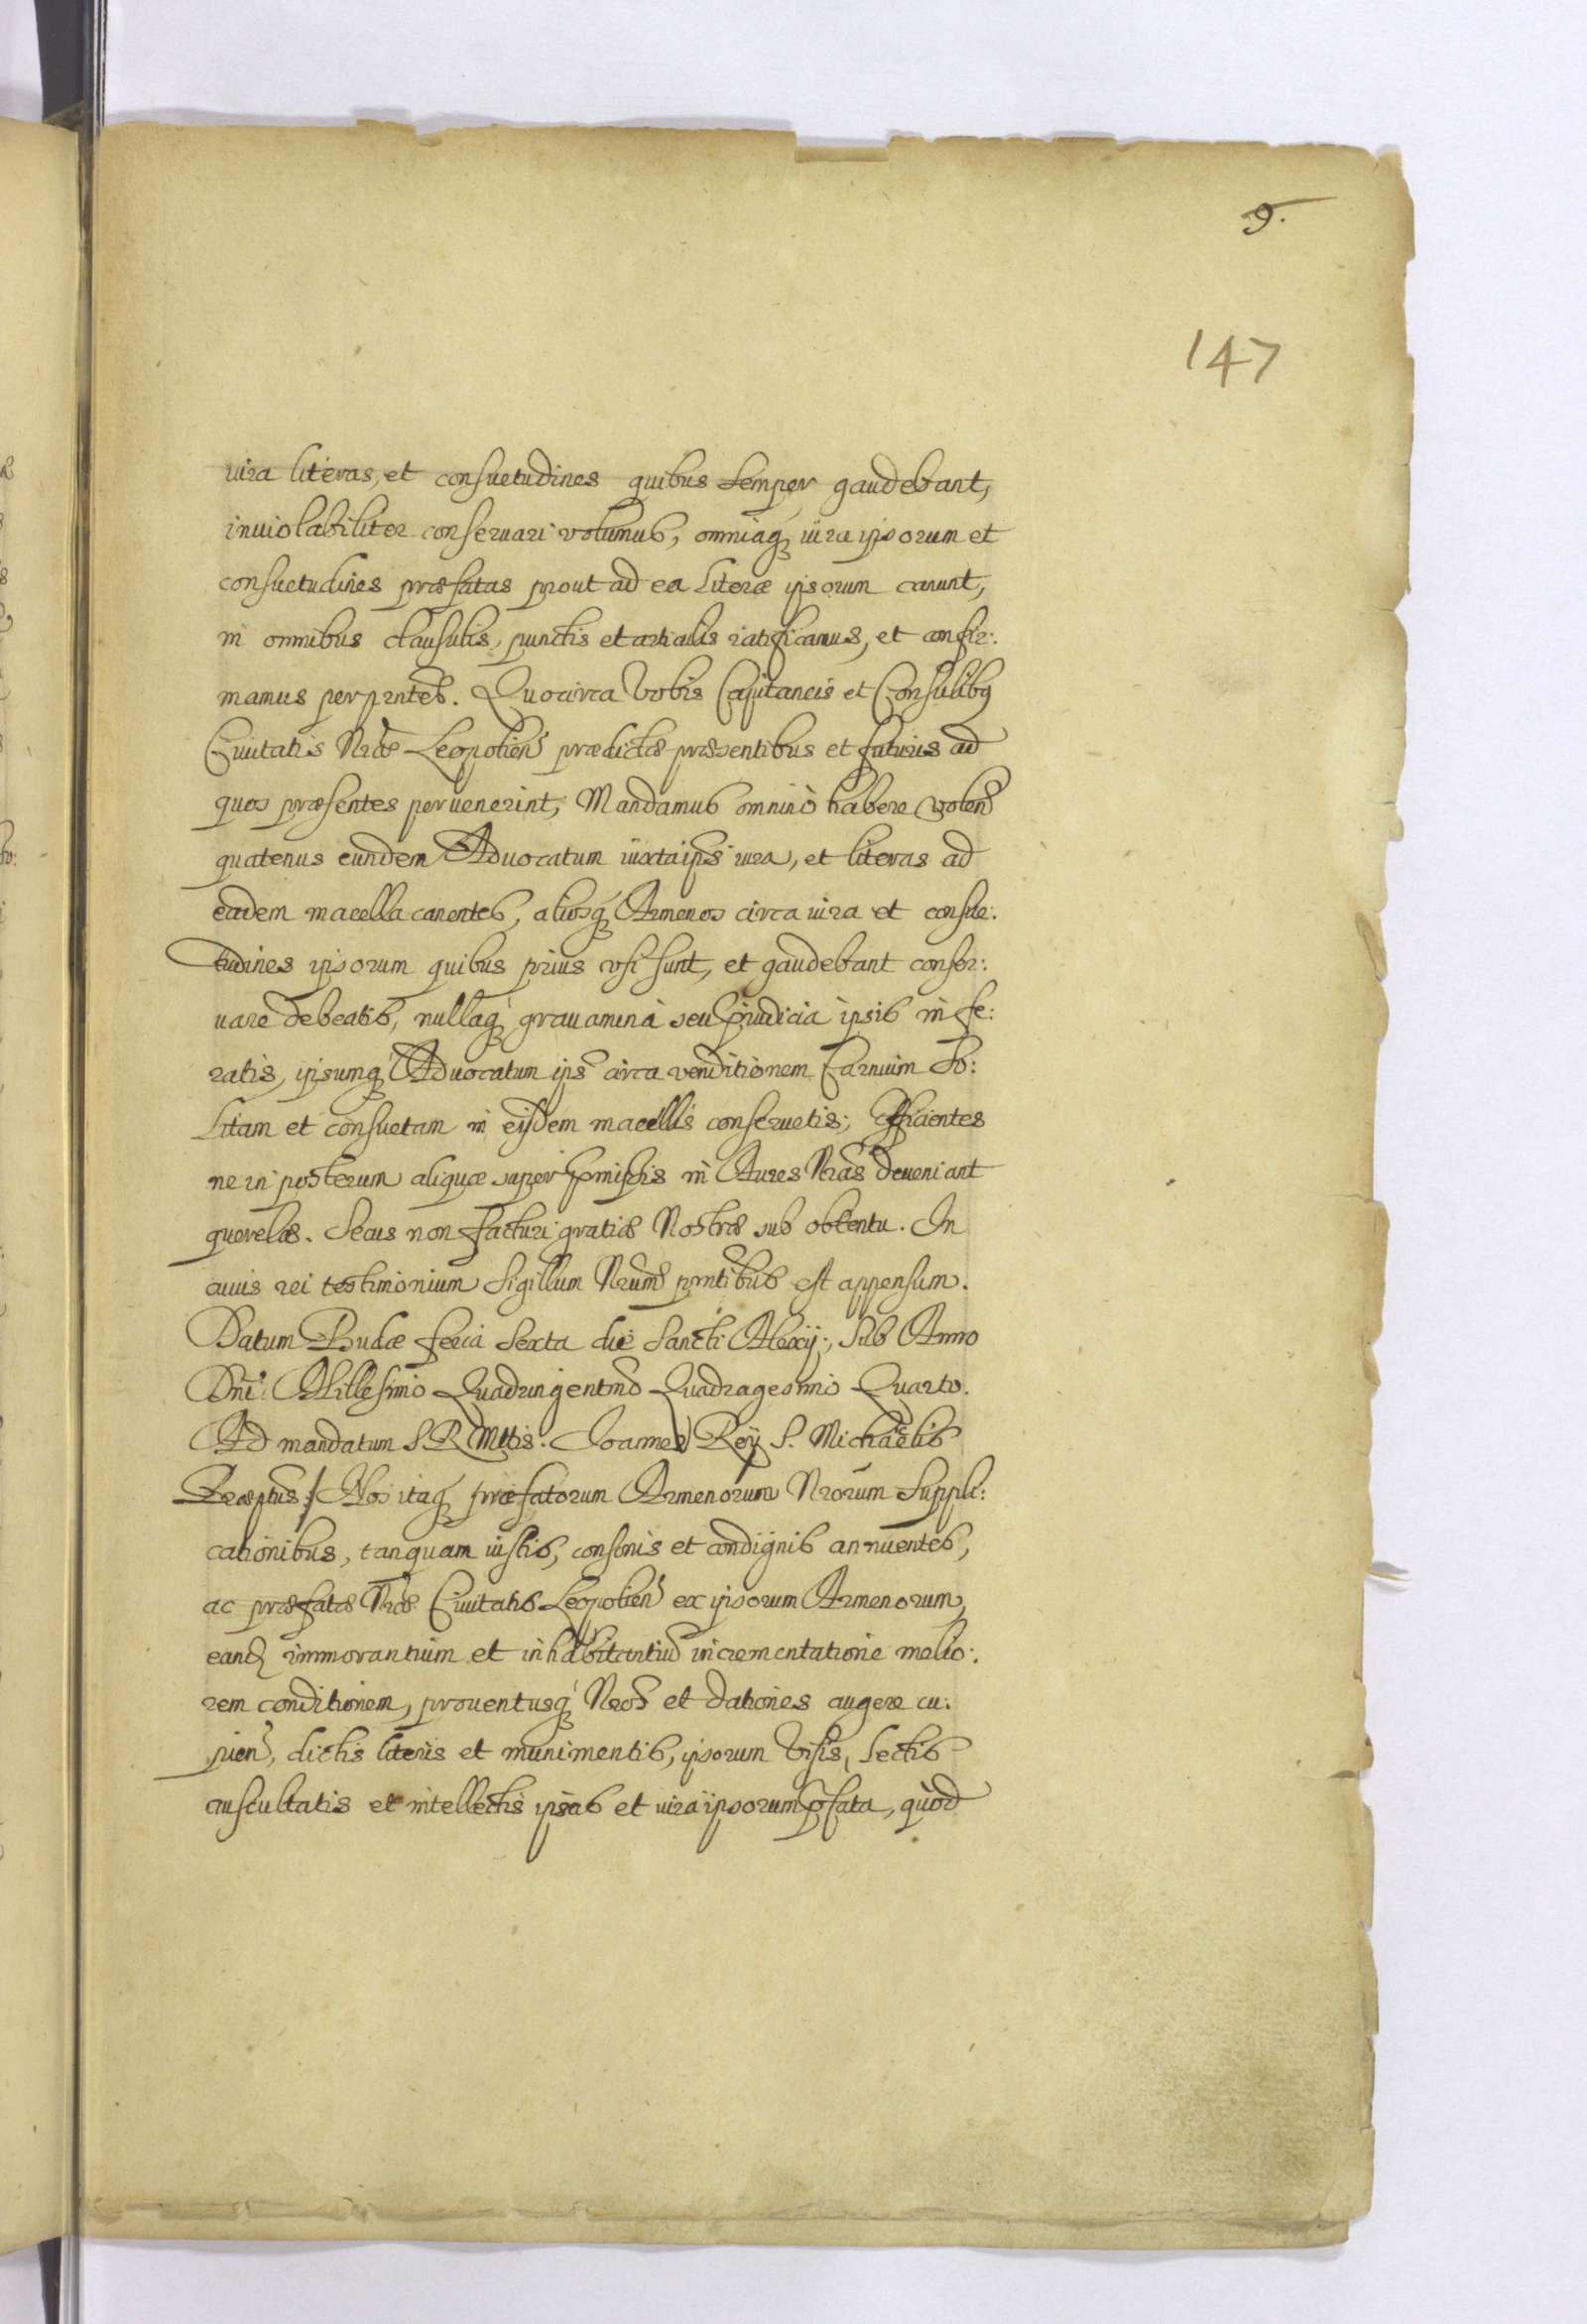 9.
147
iura literas, et consuetudines quibus semper gaudebant,
inuiolabiliter conseruari volumus, omniaq iura ipsorum et
consuetudines præfatas prout ad ea literæ ipsorum canunt,
in omnibus clausulis, punctis et articulis ratificamus, et confir:
mamus per prntes. Quocirca Vobis Capitaneis et Consulibq
Ciuitatis Nræ Leopolien prædictæ præsentibus et futuris ad
quos præsentes peruenerint, Mandamus omninò habere volen
quatenus eundem Aduocatum iuxta ips iura, et literas ad
eadem macella canentes, aliosq Armenos circa iura et consue:
tudines ipsorum quibus prius vsi sunt, et gaudebant conser:
uare debeatis, nullaq grauamina seu piudicia ipsis infe:
ratis, ipsumq Aduocatum ips circa venditionem Carnium So:
Litam et consuetam in eijsdem macellis conseruetis; Efficientes
ne in posterum aliquæ super pmissis in Aures Nras deueniant
querelæ. Secus non facturi gratiæ Nostræ sub obtentu. In
cuius rei testimonium Sigillum Nrum prntibus est appensum.
Datum Budæ feria Sexta die Sancti Alexij:, Sub Anno
Dni: Millesimo Quadringentmo Quadragesimo Quarto.
Ad mandatum S. R Mttis: Joannes Rey S. Michaëlis
Præptus:/ Nos itaq præfatorum Armenorum Nrorum Suppli:
cationibus, tanquam iustis, consonis et condignis annuentes,
ac præfatæ Nræ Ciuitatis Leopolien ex ipsorum Armenorum,
eand immorantium et inhabitantiu incrementatione melio:
rem conditionem, prouentusq Nros et dationes augere cu:
pien, dictis literis et munimentis, ipsorum Visis, Lectis
auscultatis et intellectis ipsas et iura ipsorum pfata, quòd